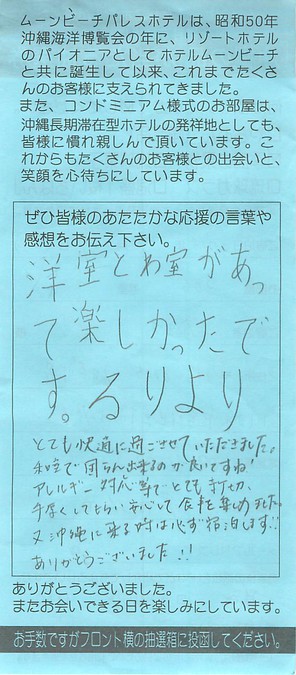 ムーンビーチパレスホテルは、昭和50年
沖縄海洋博覧会の年に、リゾートホテル
のパイオニアとしてホテルムーンビーチ
と共に誕生して以来、これまでたくさ
んのお客様に支えられてきました。
また、コンドミニアム様式のお部屋は、
沖縄長期滞在型ホテルの発祥地としても、
皆様に慣れ親しんで頂いています。こ
れからもたくさんのお客様との出会いと、
笑顔を心待ちにしています。
ぜひ皆様のあたたかな応援の言葉や
感想をお伝え下さい。
洋室とわ室があっ
て楽しかったで
す。るりより
とても快適に過ごさせていただきました。
和室で団らん出来るのが良いですね!
アレルギー対応等でとても
手厚くしてもらい安心して食事を楽しめました。
又沖縄に来る時は必ず宿泊します!!
ありがとうございました!!
ありがとうございました。
またお会いできる日を楽しみにしています。
お手数ですがフロント横の抽選箱に投函してください。